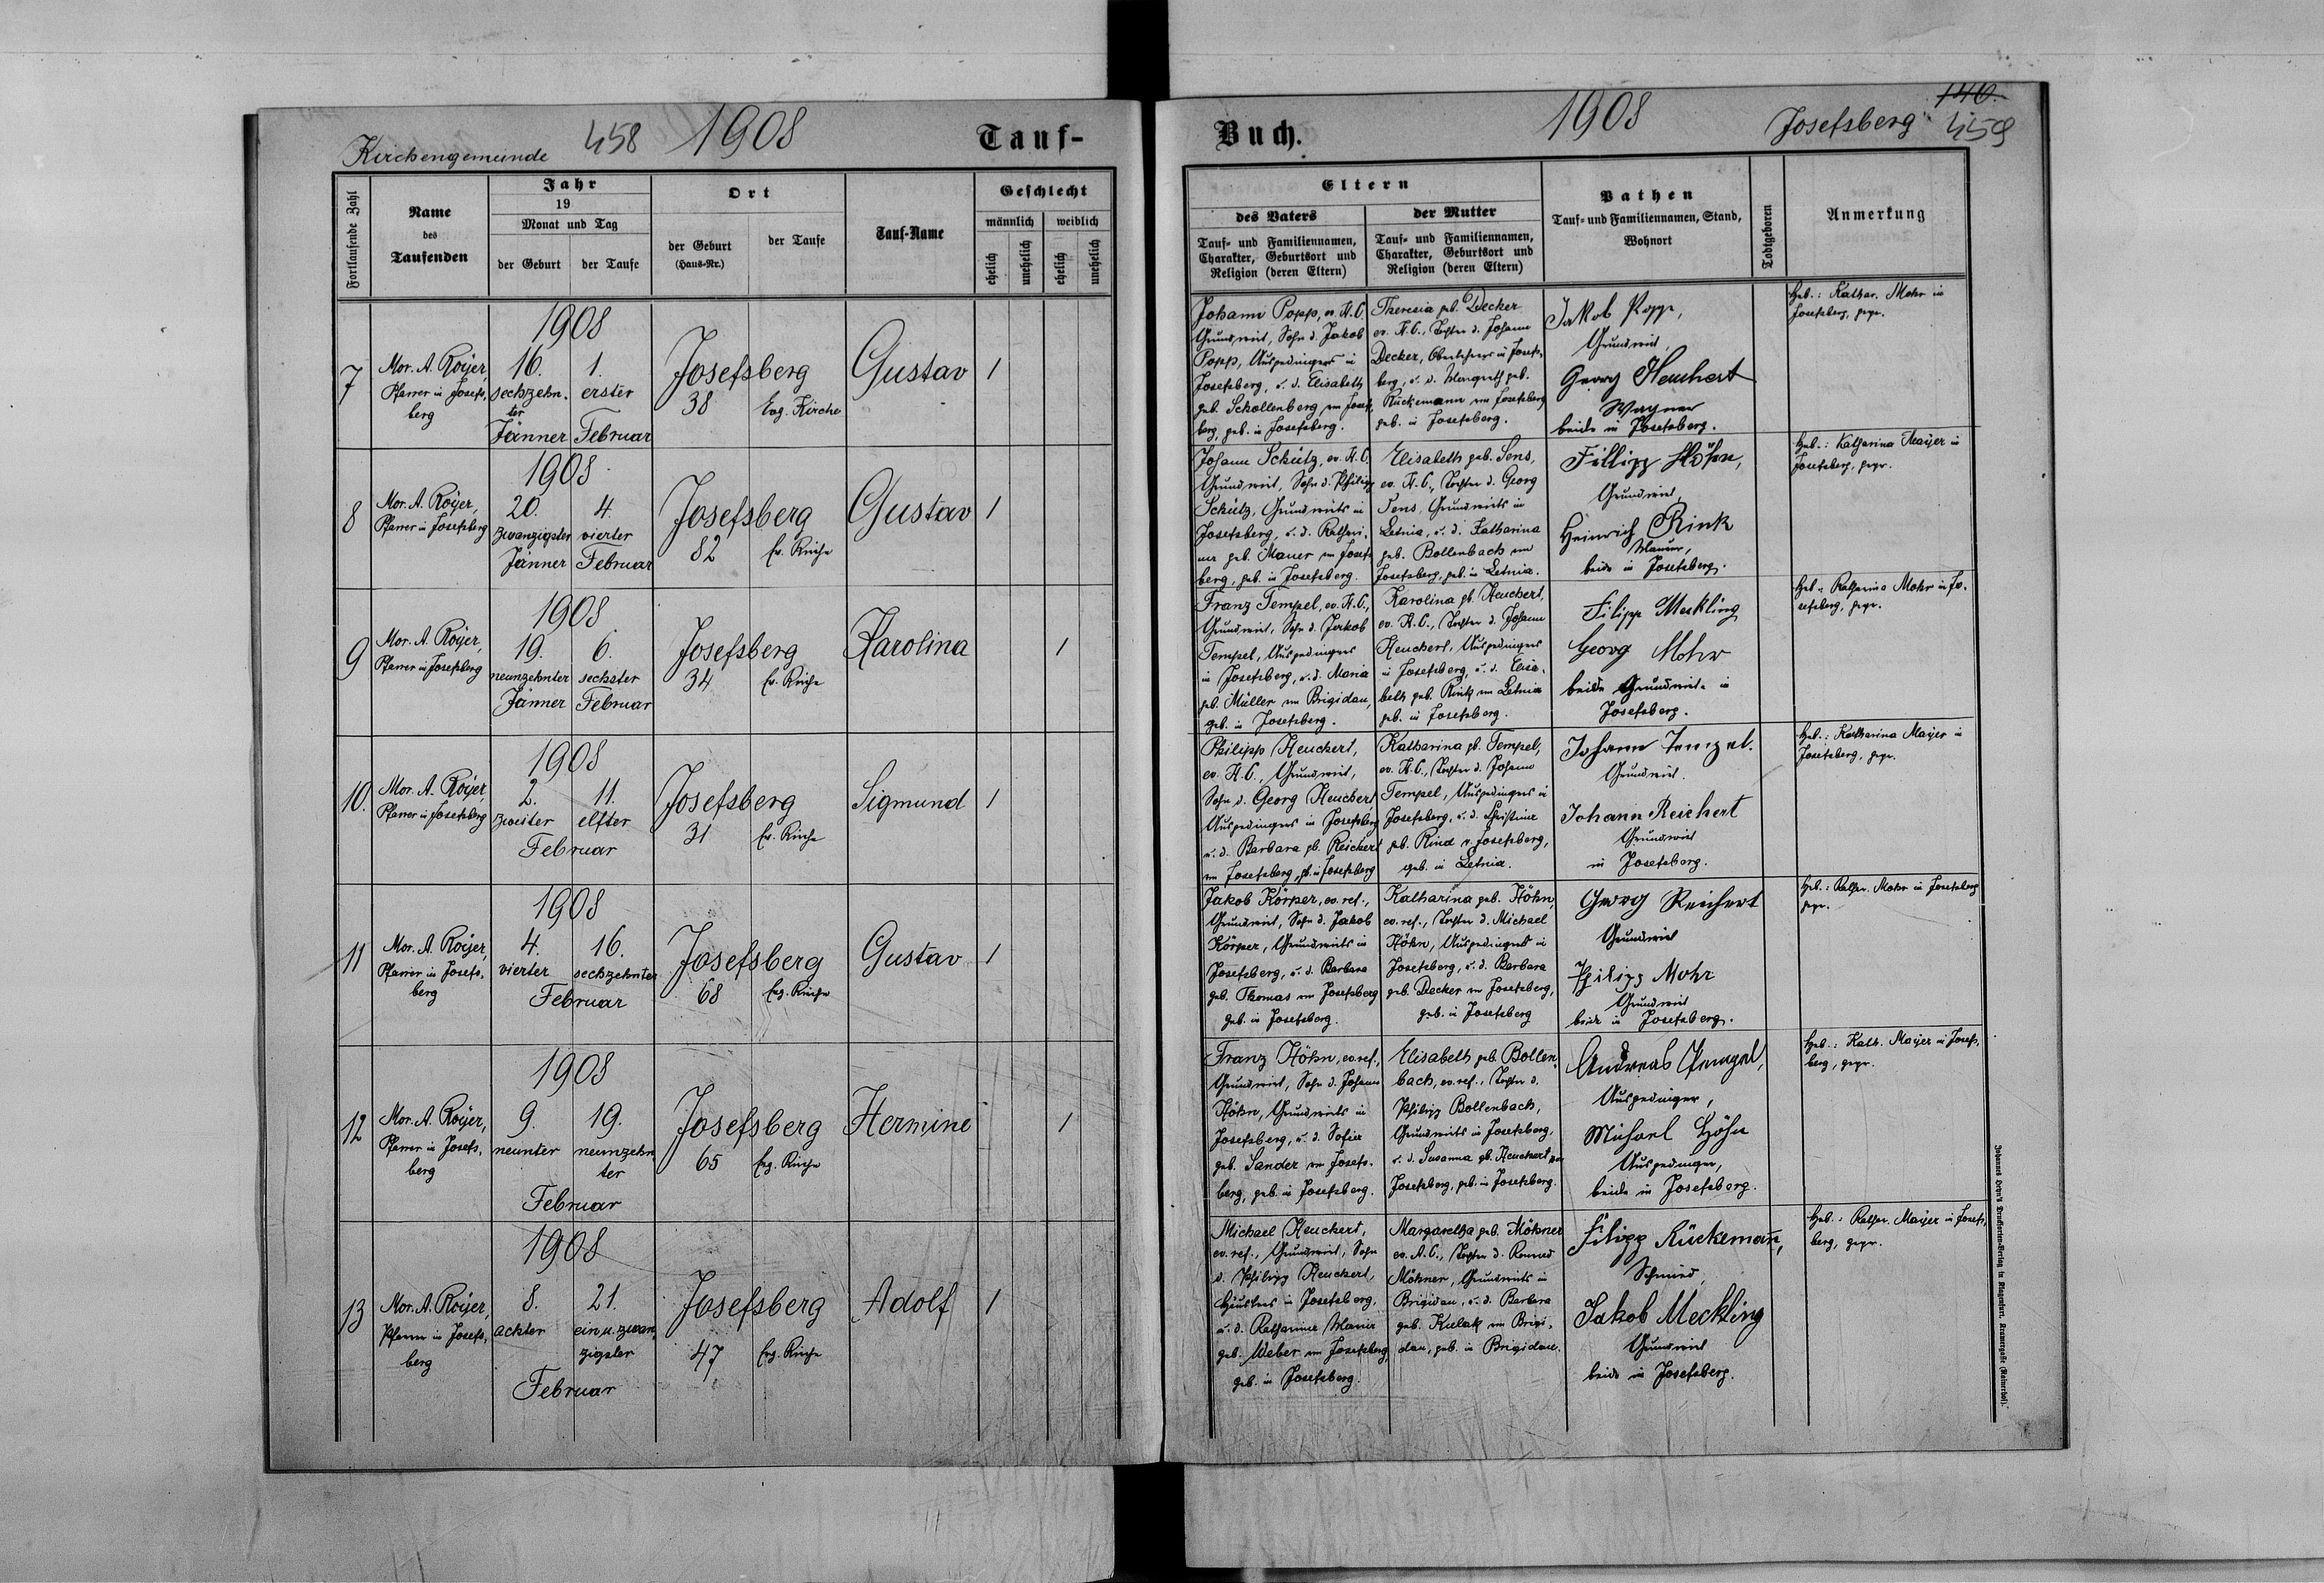 Kirchengemeinde 458 1908 Tauf-
Fortlaufende Zahl
Name
des
Taufenden
Jahr
19
Monat und Tag
der Geburt der Taufe
Ort
der Geburt
(Haus-Nr.)
der Taufe
Tauf-Name
Geschlecht
männlich weiblich
ehelich unehelich ehelich unehelich
1908
7 Mor. A. Royer, 16. 1. Josefsberg Gustav 1
Pfarrer in Josefs- sechzehn- erster 38 Evg. Kirche
berg ter
Jänner Februar
1908
8 Mor. A. Royer, 20. 4. Josefsberg Gustav 1
Pfarrer in Josefsberg zwanzigster vierter 82 Ev. Kirche
Jänner Februar
1908
9 Mor. A. Royer, 19. 6. Josefsberg Karolina 1
Pfarrer in Josefsberg neunzehnter sechster 34 Ev. Kirche
Jänner Februar
1908
10. Mor. A. Royer, 2. 11. Josefsberg Sigmund 1
Pfarrer in Josefsberg zweiter elfter 31 Ev. Kirche
Februar
1908
11 Mor. A. Royer, 4. 16. Josefsberg Gustav 1
Pfarrer in Josefs- vierter sechzehnter 68 Evg. Kirche
berg
Februar
1908
12 Mor. A. Royer, 9. 19. Josefsberg Hermine 1
Pfarrer in Josefs- neunter neunzehn 65 Evg. Kirche
berg ter
Februar
1908
13 Mor. A. Royer, 8. 21. Josefsberg Adolf 1
Pfarrer in Josefs- achter ein u. zwan- 47 Evg. Kirche
berg zigster
Februar
Buch. 1908 Josefsberg 146. 459
Eltern
des Vaters
Tauf- und Familiennamen,
Charakter, Geburtsort und
Religion (deren Eltern)
der Mutter
Tauf- und Familiennamen,
Charakter, Geburtsort und
Religion (deren Eltern)
Pathen
Tauf- und Familiennamen, Stand,
Wohnort
Todtgeboren
Anmerkung
Johann Popp, ev. A.C.
Grundwirt, Sohn d. Jakob
Popp, Ausgedingers in
Josefsberg, u. d. Elisabeth
geb. Schollenberg von Josefs-
berg, geb. in Josefsberg.
Theresia geb. Decker
ev. A.C., Tochter d. Johann
Decker, Oberlehrers in Josefs-
berg, u. d. Margreth geb.
Rückemann von Josefsberg
geb. in Josefsberg.
Jakob Popp,
Grundwirt,
Georg Heuchert
Wagner
beide in Josefsberg.
Heb.: Kathar. Mohr in
Josefsberg, gepr.
Johann Schütz, ev. A.C.
Grundwirt, Sohn d. Philipp
Schütz, Grundwirts in
Josefsberg, u. d. Kathari-
na geb. Mauer von Josefs-
berg, geb. in Josefsberg.
Elisabeth geb. Sens,
ev. A.C., Tochter d. Georg
Sens, Grundwirts in
Letnia, u. d. Katharina
geb. Bollenbach von
Josefsberg, geb. in Letnia.
Fillipp Höhn,
Grundwirt,
Heinrich Rink
Maurer,
beide in Josefsberg.
Heb.: Katharina Mayer in
Josefsberg, gepr.
Franz Tempel, ev. A.C.,
Grundwirt, Sohn d. Jakob
Tempel, Ausgedingers
in Josefsberg, u. d. Maria
geb. Müller von Brigidau,
geb. in Josefsberg.
Karolina gb. Heuchert,
ev. A.C., Tochter d. Johann
Heuchert, Ausgedingers
in Josefsberg, u. d. Elisa-
beth geb. von Letnia
geb. in Josefsberg.
Filipp Meckling
Georg Mohr
beide Grundwirte in
Josefsberg.
Heb.: Katharina Mohr in Jo-
sefsberg, gepr.
Philipp Heuchert,
ev. A.C., Grundwirt,
Sohn d. Georg Heuchert
Ausgedingers in Josefsberg
u. d. Barbara gb. Reichert
von Josefsberg, gb. in Josefsberg
Katharina gb. Tempel,
ev. A.C., Tochter d. Johann
Tempel, Ausgedingers in
Josefsberg, u. d. Christina
geb. v. Josefsberg,
geb. in Letnia.
Johann Tempel.
Grundwirt.
Johann Reichert
Grundwirt
in Josefsberg.
Heb.: Katharina Mayer in
Josefsberg, gepr.
Jakob Körper, ev. ref.,
Grundwirt, Sohn d. Jakob
Körper, Grundwirts in
Josefsberg, u. d. Barbara
geb. Thomas von Josefsberg
geb. in Josefsberg.
Katharina geb. Höhn,
ev. ref., Tochter d. Michael
Höhn, Ausgedingers in
Josefsberg, u. d. Barbara
geb. Decker von Josefsberg,
geb. in Josefsberg
Georg Reichert
Grundwirt
Philipp Mohr
Grundwirt
beide in Josefsberg.
Heb.: Kathar. Mohr in Josefsberg
gepr.
Franz Höhn, ev. ref.,
Grundwirt, Sohn d. Johann
Höhn, Grundwirts in
Josefsberg, u. d. Sofia
geb. Sander von Josefs-
berg, geb. in Josefsberg.
Elisabeth geb. Bollen-
bach, ev. ref., Tochter d.
Philipp Bollenbach,
Grundwirts in Josefsberg,
u. d. Susanna gb. Heuchert von
Josefsberg, geb. in Josefsberg.
Andreas Tempel,
Ausgedinger,
Michael Höhn
Ausgedinger,
beide in Josefsberg.
Heb.: Kath. Mayer in Josefs-
berg, gepr.
Michael Heuchert,
ev. ref., Grundwirt, Sohn
d. Philipp Heuchert,
Häuslers in Josefsberg,
u. d. Katharina Maria
geb. Weber von Josefsberg,
geb. in Josefsberg.
Margaretha geb. Möhner
ev. A.C., Tochter d. Konrad
Möhner, Grundwirts in
Brigidau, u. d. Barbara
geb. Kulak von Brigi-
dau, geb. in Brigidau.
Filipp Rückemann,
Schmied,
Jakob Meckling
Grundwirt
beide in Josefsberg.
Heb.: Kathar. Mayer in Josefs-
berg, gepr.
Johannes Heyn's Drucksorten-Verlag in Klagenfurt, Kramergasse (Rainerhof).